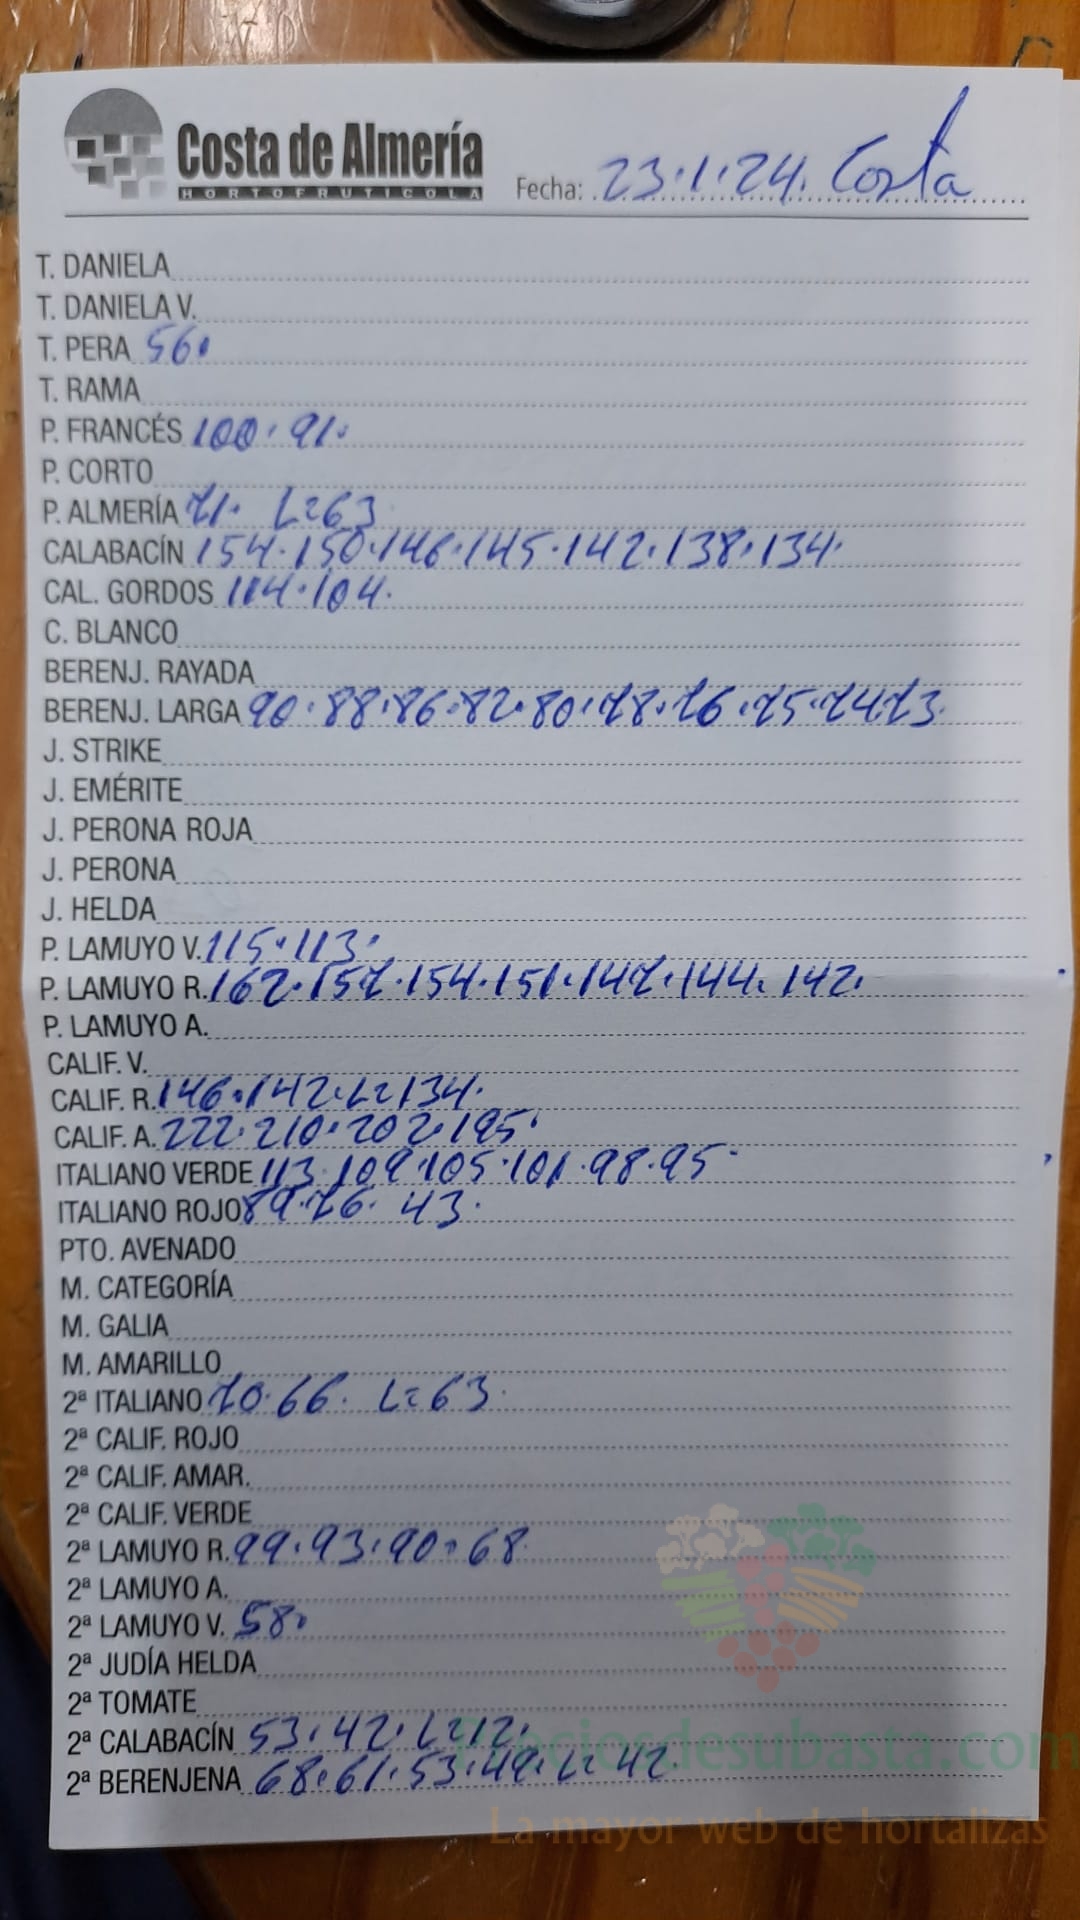 Costa de Almería
HORTOFRUTICOLA
Fecha: 23.1.24. Costa
T. DANIELA
T. DANIELA V.
T. PERA 56.
T. RAMA
P. FRANCÉS 100. 91.
P. CORTO
P. ALMERÍA 71. L=63
CALABACÍN 154.150.146.145.142.138.134.
CAL. GORDOS 114.104.
C. BLANCO
BERENJ. RAYADA
BERENJ. LARGA 90.88.86.82.80.78.76.75.74.73.
J. STRIKE
J. EMÉRITE
J. PERONA ROJA
J. PERONA
J. HELDA
P. LAMUYO V. 115.113.
P. LAMUYO R. 162.157.154.151.147.144.142.
P. LAMUYO A.
CALIF. V.
CALIF. R. 146.142.L=134.
CALIF. A. 222.210.202.195.
ITALIANO VERDE 113.109.105.101.98.95.
ITALIANO ROJO 89.76. 43.
PTO. AVENADO
M. CATEGORÍA
M. GALIA
M. AMARILLO
2ª ITALIANO 70.66. L=63.
2ª CALIF. ROJO
2ª CALIF. AMAR.
2ª CALIF. VERDE
2ª LAMUYO R. 99.93.90.68.
2ª LAMUYO A.
2ª LAMUYO V. 58.
2ª JUDÍA HELDA
2ª TOMATE
2ª CALABACÍN 53.42.L=12.
2ª BERENJENA 68.61.53.49.L=42.
Preciosdesubasta.com
La mayor web de hortalizas